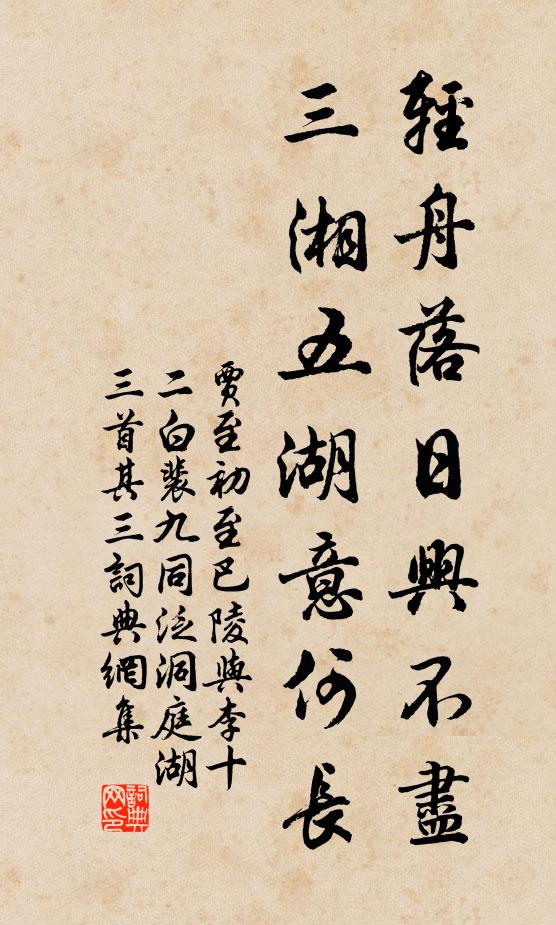 輕舟落日興不盡
三湘五湖意何長
賈至初至巴陵與李十
二白裴九同泛洞庭湖
三首其三詞典網集
詞典
网印